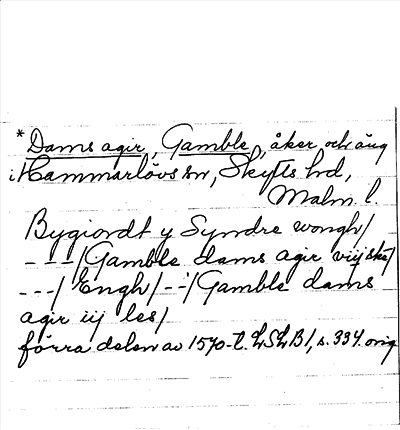 * Dams agir, Gamble, åker och äng
i Hammarlövs sn, Skytts hd,
Malm. l.
Bygiordt y Syndre wongh/
---/Gamble dams agir viij skè/
---/Engh/--/Gamble dams
agir iij les/
förra delen av 1570-t. LSLB1, s. 334. orig